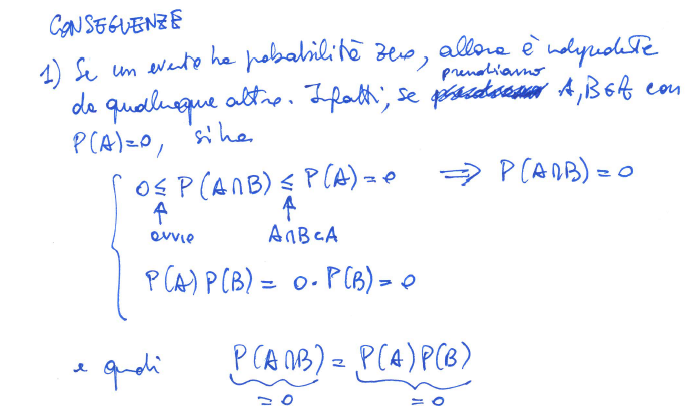 CONSEGUENZE
1) Se un evento ha probabilità zero, allora è indipendente
da qualunque altro. Infatti, se prendiamo A, B ∈ A con
P(A)=0, si ha
0 ≤ P(A∩B) ≤ P(A) = 0 ⟹ P(A∩B) = 0
↑ ↑
ovvio A∩B⊂A
P(A) P(B) = 0 · P(B) = 0
e quindi P(A∩B) = P(A) P(B)
= 0 = 0